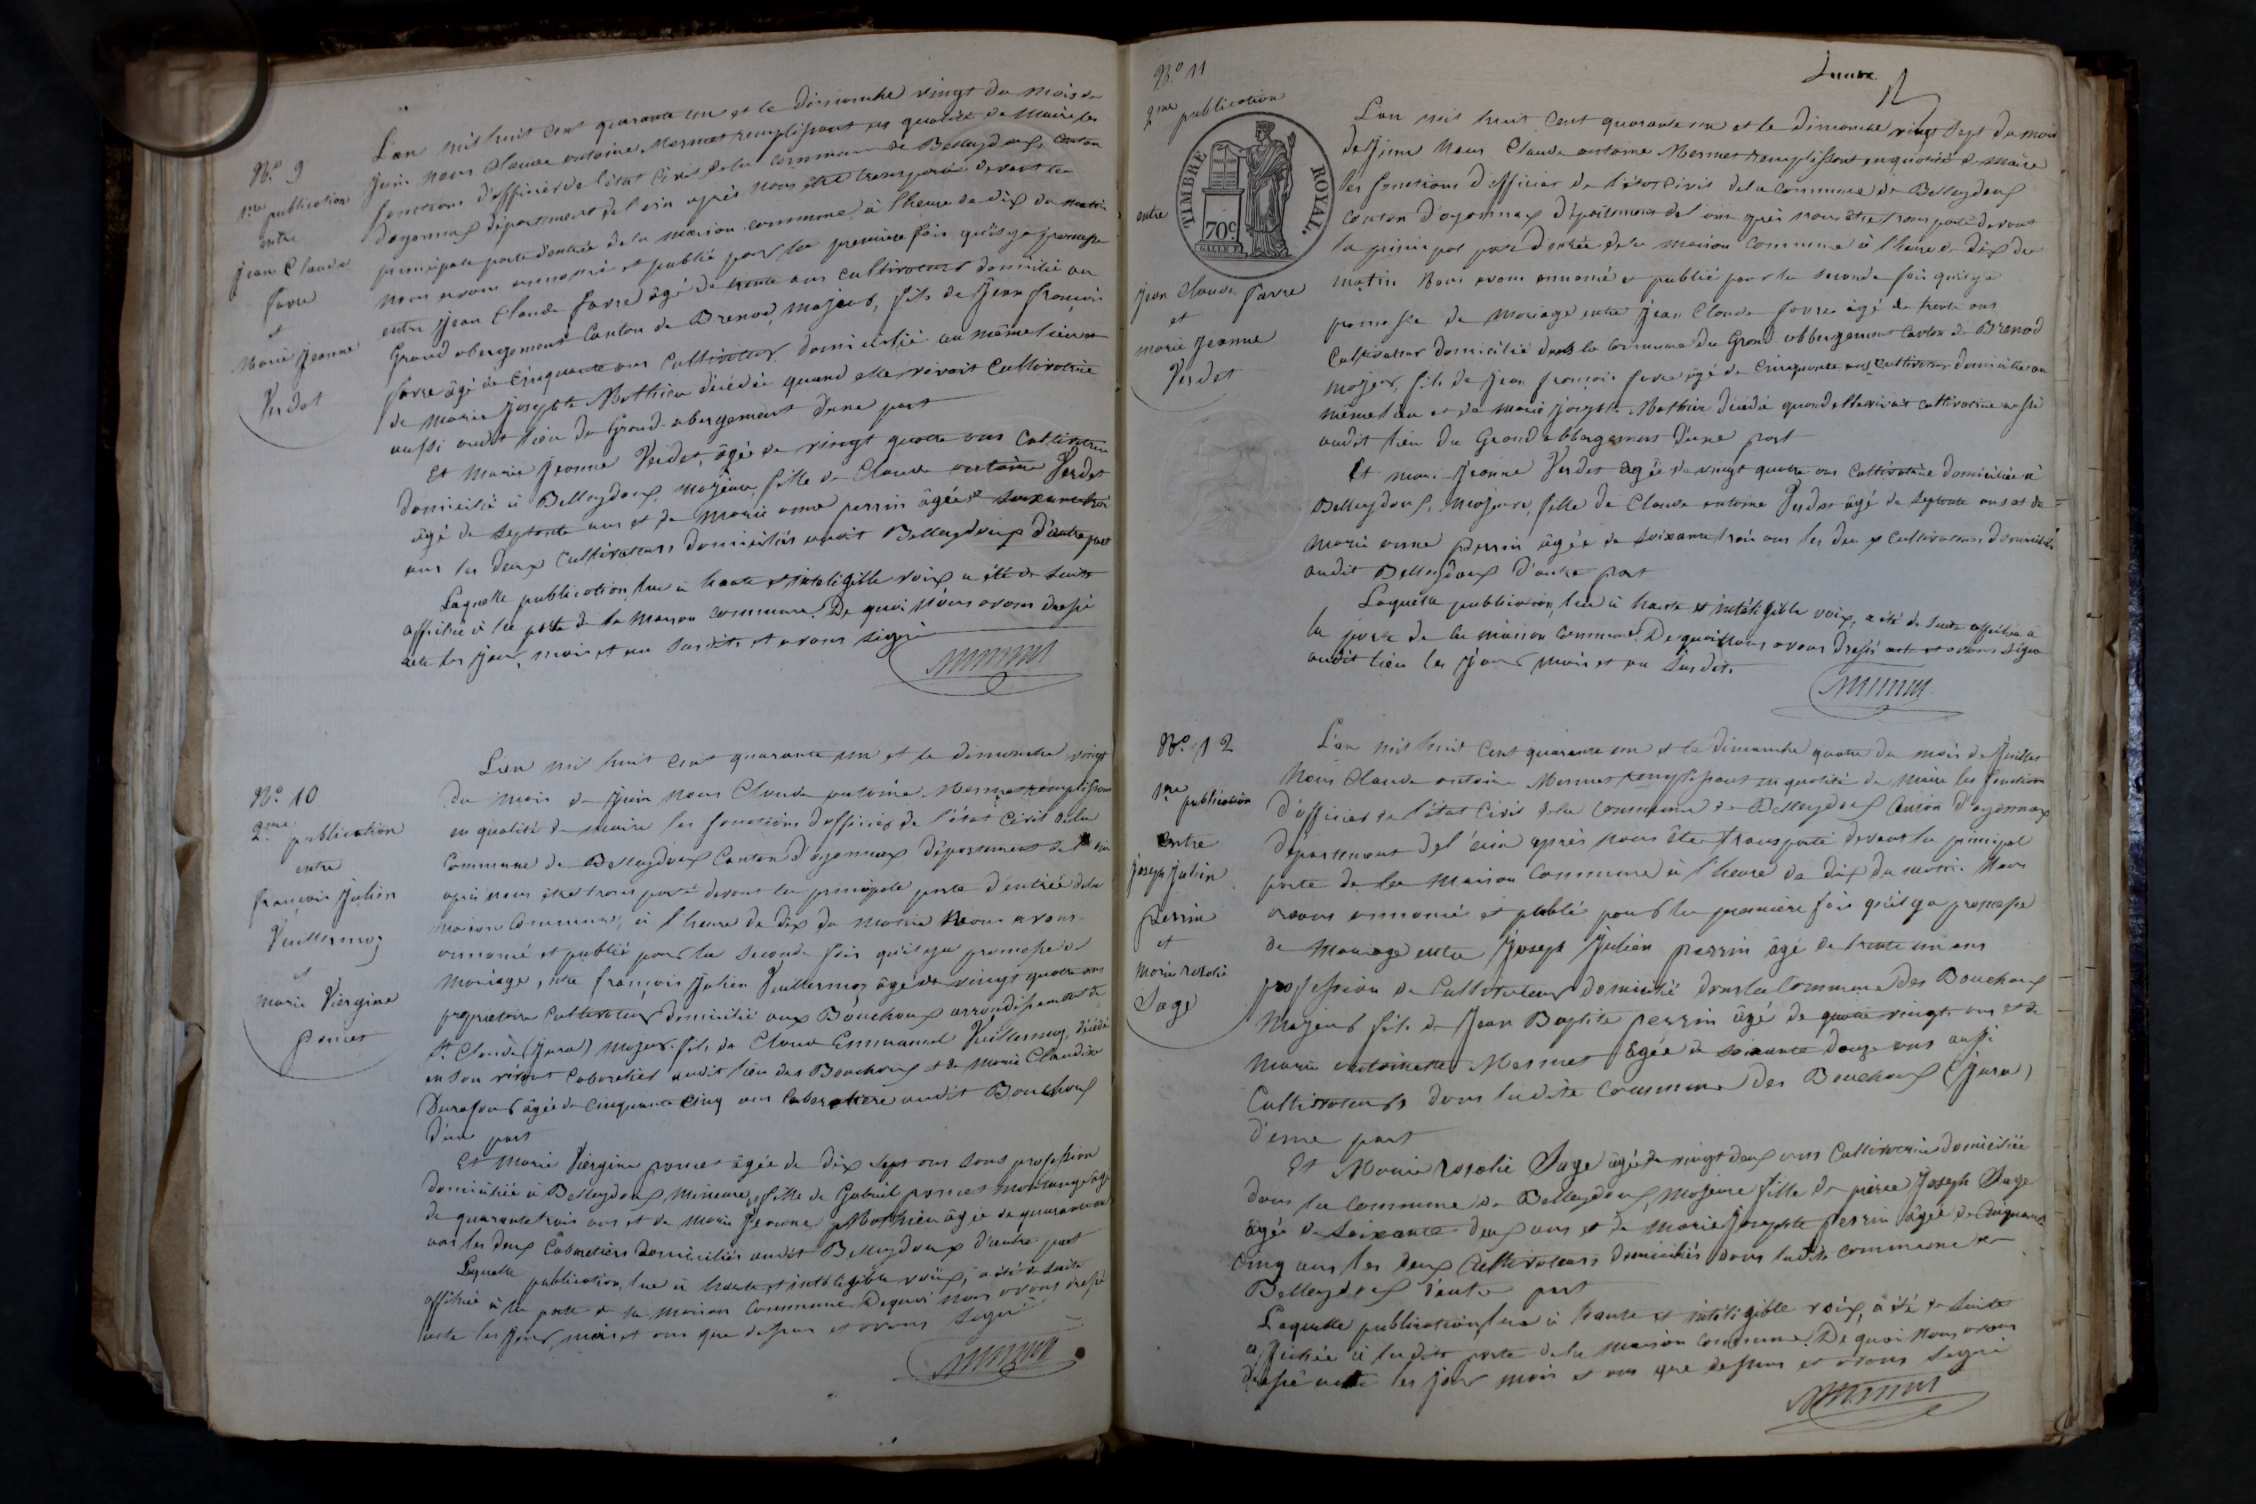 N.o 9
1re publication
entre
Jean Claude
favre
et
Marie Jeanne
Verdet
L'an mil huit cent quarante un et le dimanche vingt du mois de
juin nous Claude antoine Mermet remplissant en qualité de Maire les
fonctions d'officier de l'état Civil de la Commune de Belleydoux, Canton
d'oyonnax département de l'ain après nous être transporté devant la
principale porte d'entrée de la maison commune à l'heure de dix du matin
nous avons annoncé et publié pour la première fois qu'il y a promesse
entre Jean Claude favre âgé de trente ans cultivateur domicilié au
Grand abergement Canton de Brenod, majeur, fils de Jean françois
favre âgé de cinquante ans cultivateur domicilié au même lieu et
de Marie Josephte Mathieu décédée quand elle vivait Cultivatrice
aussi audit lieu du Grand abergement d'une part
Et Marie Jeanne Verdet, âgée de vingt quatre ans Cultivatrice
domicilié à Belleydoux, majeure, fille de Claude antoine Verdet
âgé de septante ans et de Marie anne perrin âgée de soixante trois
ans les deux Cultivateurs domiciliés audit Belleydoux d'autre part
Laquelle publication, lue à haute et intelligible voix a été de suite
affichée à la porte de la Maison Commune. De quoi Nous avons dressé
acte les jour, mois et an susdits et avons signé
Mermet
N.o 10
2me publication
entre
françois Julien
Vuillermoz
et
Marie Viergine
poncet
L'an mil huit cent quarante un et le dimanche vingt
du mois de Juin nous Claude antoine Mermet remplissant
en qualité de maire les fonctions d'officier de l'état Civil de la
Commune de Belleydoux Canton d'oyonnax département de l'ain
après nous être transporté devant la principale porte d'entrée de la
maison Commune, à l'heure de dix du matin Nous avons
annoncé et publié pour la seconde fois qu'il y a promesse de
Mariage, entre françois Julien Vuillermoz âgé de vingt quatre ans
propriétaire Cultivateur domicilié aux Bouchoux arrondissement de
St. Claude (Jura) majeur fils de Claude Emmanuel Vuillermoz, décédé
en son vivant Cabaretier audit lieu des Bouchoux et de Marie Claudine
Durafour âgée de cinquante cinq ans Cabaretiere audit Bouchoux
d'une part
Et Marie Viergine poncet âgée de dix sept ans sans profession
domiciliée à Belleydoux, mineure, fille de Gabriel poncet âgé
de quarante trois ans et de Marie Jeanne Mathieu âgée de quarante
ans les deux Cabaretiers domiciliés audit Belleydoux d'autre part
Laquelle publication, lue à haute et intelligible voix, a été de suite
affichée à la porte de la maison Commune. De quoi nous avons dressé
acte les jour, mois et an que dessus et avons signé
Mermet
N.o 11
2me publication
TIMBRE ROYAL.
70c
entre
Jean Claude favre
et
Marie Jeanne
Verdet
L'an mil huit cent quarante un et le dimanche vingt sept du mois
de Juin Nous Claude antoine Mermet remplissant en qualité de Maire
les fonctions d'officier de l'état civil de la commune de Belleydoux
Canton d'oyonnax département de l'ain après nous être transporté devant
la principal porte d'entrée de la maison Commune à l'heure de dix du
matin Nous avons annoncé et publié pour la seconde fois qu'il y a
promesse de Mariage entre Jean Claude favre âgé de trente ans
Cultivateur domicilié dans la commune du Grand abbergement Canton de Brenod
majeur, fils de Jean françois favre âgé de cinquante ans Cultivateur domicilié au
même lieu et de Marie Josephte Mathieu décédée quand elle vivait cultivatrice aussi
audit lieu du Grand abbergement d'une part
Et Marie Jeanne Verdet âgée de vingt quatre ans Cultivatrice domiciliée à
Belleydoux, majeure, fille de Claude antoine Verdet âgé de septante ans et de
Marie anne perrin âgée de soixante trois ans les deux Cultivateurs domiciliés
audit Belleydoux d'autre part
Laquelle publication, lue à haute et intelligible voix, a été de suite affichée à
la porte de la maison Commune. De quoi Nous avons dressé acte et avons signé
audit lieu les jour mois et an susdits
Mermet
N.o 12
1re publication
Entre
Joseph Julien
perrin
et
Marie rosalie
Sage
L'an mil huit cent quarante un et le dimanche quatre du mois de Juillet
Nous Claude antoine Mermet remplissant en qualité de Maire les fonctions
d'officier de l'état Civil de la Commune de Belleydoux Canton d'oyonnax
département de l'ain après nous être transporté devant la principal
porte de la Maison Commune à l'heure de dix du matin. Nous
avons annoncé et publié pour la première fois qu'il y a promesse
de Mariage entre Joseph Julien perrin âgé de trente un ans
profession de Cultivateur domicilié dans la Commune des Bouchoux
Majeur fils de Jean Baptiste perrin âgé de quatre vingt ans et de
Marie antoinette Mermet âgée de soixante douze ans aussi
Cultivateurs dans ladite Commune des Bouchoux (Jura)
d'une part
Et Marie rosalie Sage âgée de vingt deux ans Cultivatrice domiciliée
dans la Commune de Belleydoux, Majeure fille de pierre Joseph Sage
âgé de soixante deux ans et de Marie Josephte perrin âgée de cinquante
cinq ans les deux Cultivateurs domiciliés dans ladite commune de
Belleydoux d'autre part
Laquelle publication, lue à haute et intelligible voix, a été de suite
affichée à ladite porte de la Maison Commune. De quoi Nous avons
dressé acte les jour mois et an que dessus et avons signé
Mermet